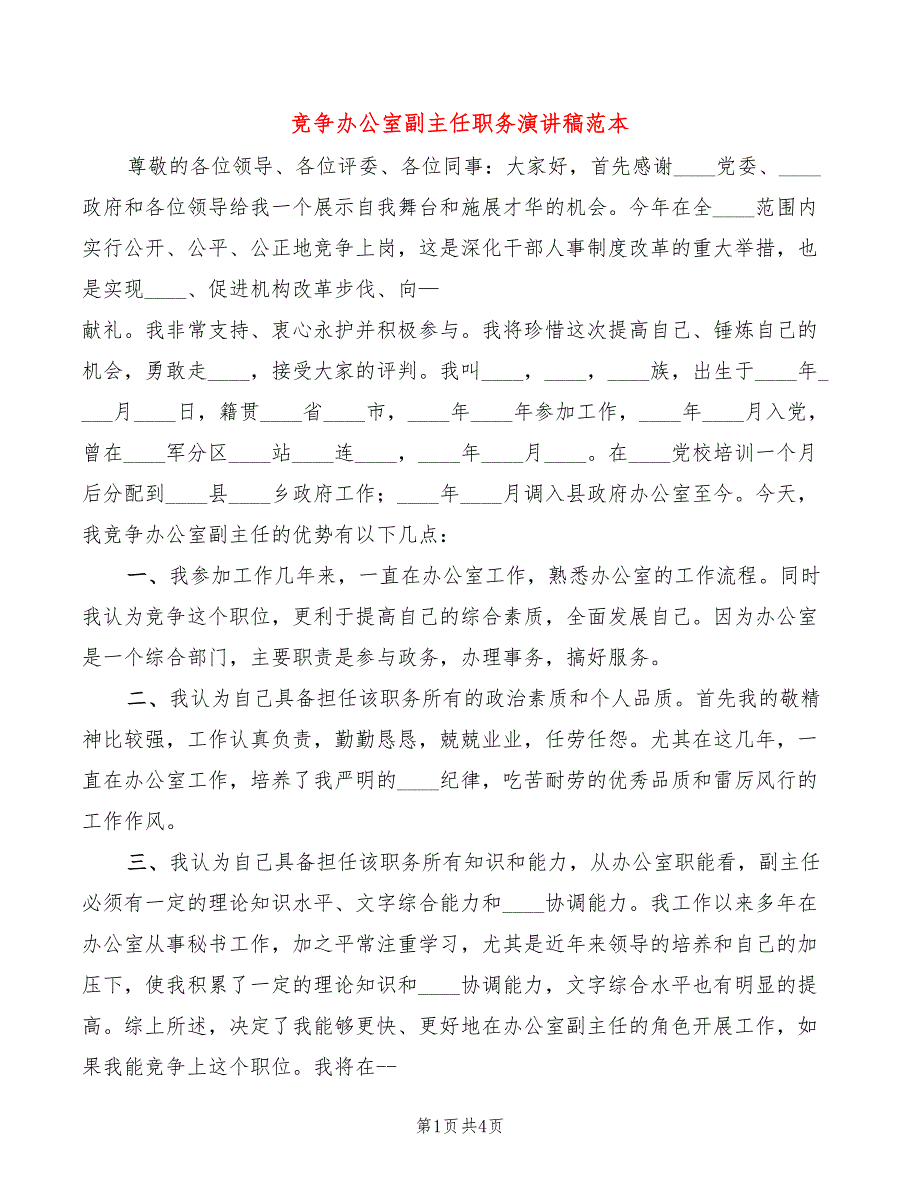 竞争办公室副主任职务演讲稿范本
尊敬的各位领导、各位评委、各位同事：大家好，首先感谢____党委、____
政府和各位领导给我一个展示自我舞台和施展才华的机会。今年在全____范围内
实行公开、公平、公正地竞争上岗，这是深化干部人事制度改革的重大举措，也
是实现____、促进机构改革步伐、向—
献礼。我非常支持、衷心永护并积极参与。我将珍惜这次提高自己、锤炼自己的
机会，勇敢走____，接受大家的评判。我叫____，____，____族，出生于____年_
___月____日，籍贯____省____市，____年____年参加工作，____年____月入党，
曾在____军分区____站____连____，____年____月____。在____党校培训一个月
后分配到____县____乡政府工作；____年____月调入县政府办公室至今。今天，
我竞争办公室副主任的优势有以下几点：
一、我参加工作几年来，一直在办公室工作，熟悉办公室的工作流程。同时
我认为竞争这个职位，更利于提高自己的综合素质，全面发展自己。因为办公室
是一个综合部门，主要职责是参与政务，办理事务，搞好服务。
二、我认为自己具备担任该职务所有的政治素质和个人品质。首先我的敬精
神比较强，工作认真负责，勤勤恳恳，兢兢业业，任劳任怨。尤其在这几年，一
直在办公室工作，培养了我严明的____纪律，吃苦耐劳的优秀品质和雷厉风行的
工作作风。
三、我认为自己具备担任该职务所有知识和能力，从办公室职能看，副主任
必须有一定的理论知识水平、文字综合能力和____协调能力。我工作以来多年在
办公室从事秘书工作，加之平常注重学习，尤其是近年来领导的培养和自己的加
压下，使我积累了一定的理论知识和____协调能力，文字综合水平也有明显的提
高。综上所述，决定了我能够更快、更好地在办公室副主任的角色开展工作，如
果我能竞争上这个职位。我将在--
第1页共4页